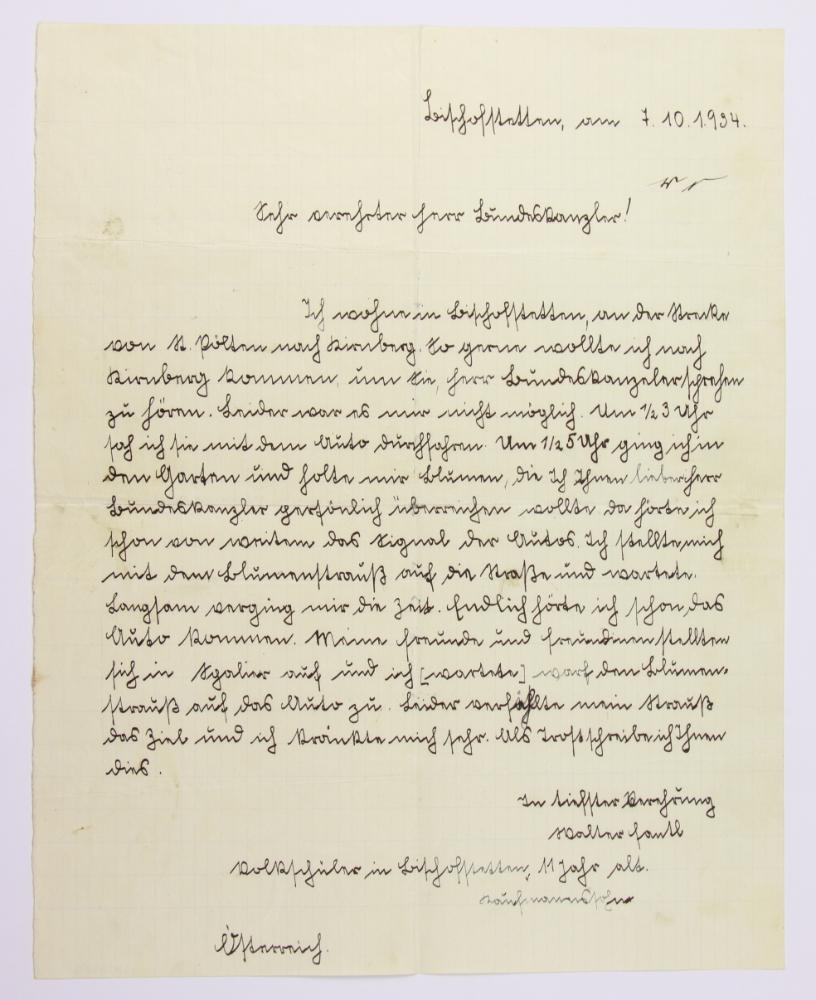 Bischofstetten, am 7.10.1.934.
Sehr verehrter Herr Bundeskanzler!
Ich wohne in Bischofstetten, an der Strecke
von St. Pölten nach Kirnberg. So gerne wollte ich nach
Kirnberg kommen, um Sie, Herr Bundeskanzeler sprehen
zu hören. Leider war es mir nicht möglich. Um 1/2 3 Uhr
sah ich sie mit dem Auto durchfahren. Um 1/2 5 Uhr ging ich in
den Garten und holte mir Blumen, die Ich Ihnen lieber Herr
Bundeskanzler persönlich überreichen wollte da hörte ich
schon von weitem das Signal der Autos. Ich stellte mich
mit dem Blumenstrauß auf die Straße und wartete.
Langsam verging mir die Zeit. Endlich hörte ich schon das
Auto kommen. Meine Freunde und Freundinen stellten
sich in Spalier auf und ich [wartete] warf den Blumen-
strauß auf das Auto zu. Leider verfählte mein Strauß
das Ziel und ich kränkte mich sehr. Als Trost schreibe ich Ihnen
dies.
In tiefster Verehrung
Walter Fantl
Volkschüler in Bischofstetten, 11 Jahr alt.
Kaufmannssohn
Österreich.